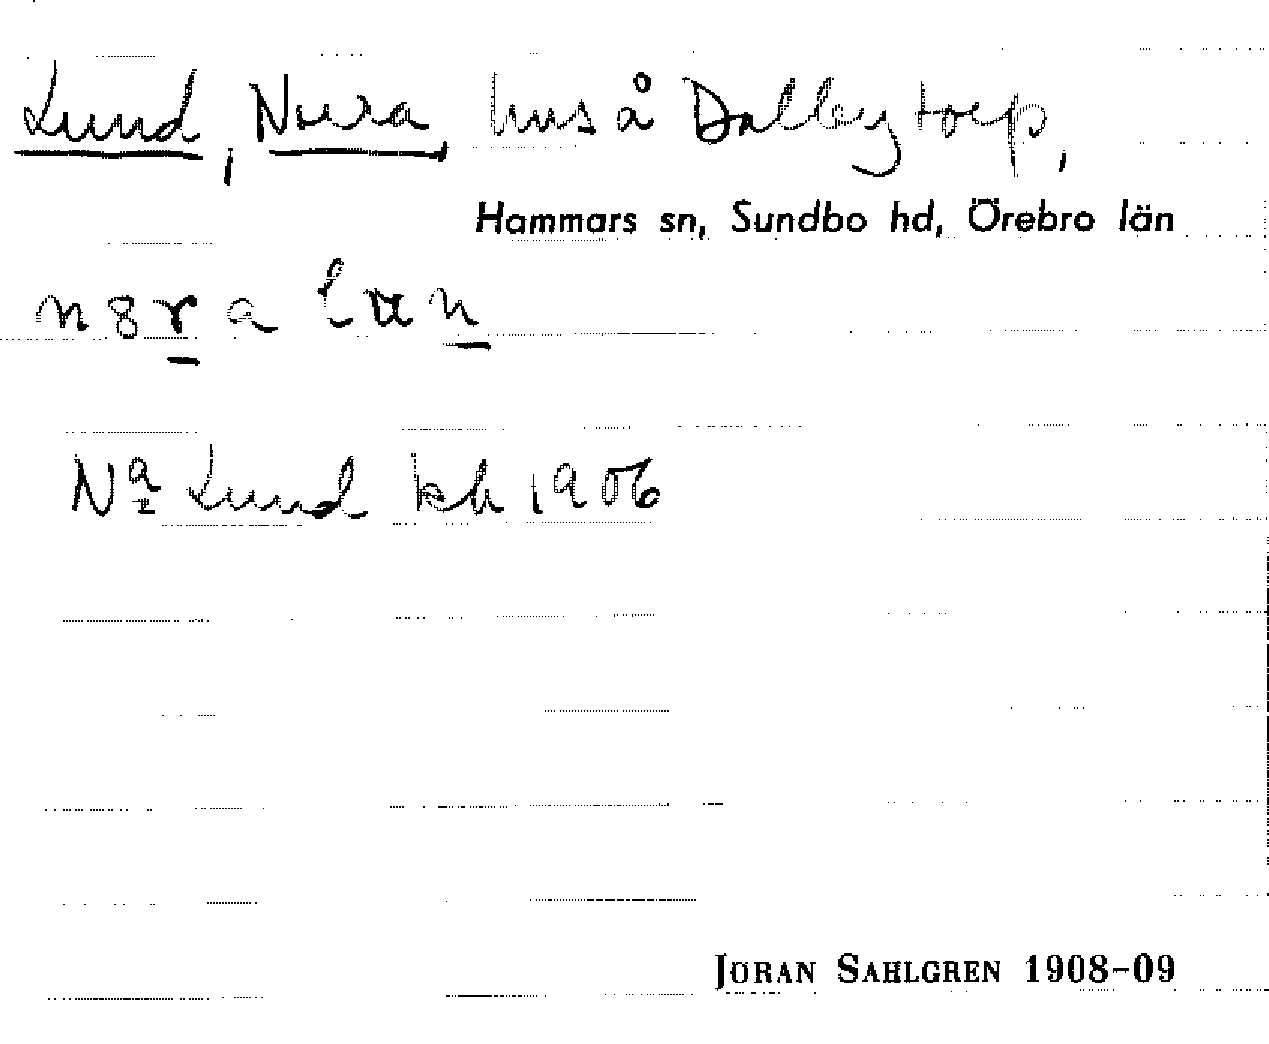 Lund, Nura hus å Dalbytorp,
Hammars sn, Sundbo hd, Örebro län
Na Lund kh 1906
JÖRAN SAHLGREN 1908-09